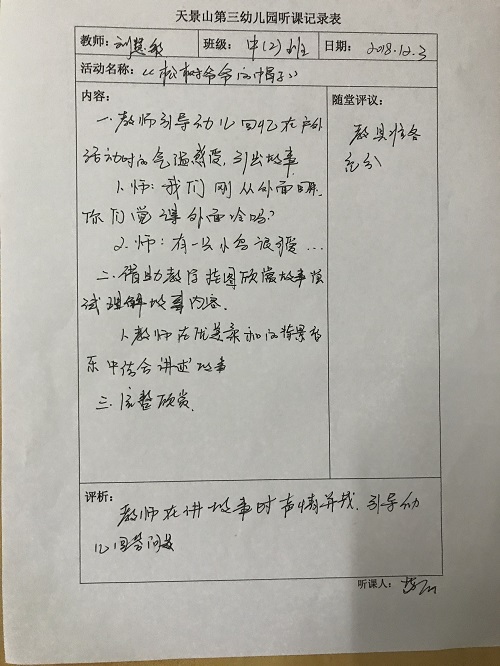 天景山第三幼儿园听课记录表
教师：刘慧敏 班级：中(2)班 日期：2018.12.3
活动名称：《松树爷爷的帽子》
内容：
随堂评议：
一.教师引导幼儿回忆在户外
活动时的气温感受，引出故事
1.师：我们刚从外面回来，
你们觉得外面冷吗？
2.师：有一只小鸟
二.借助教学挂图欣赏故事
试理解故事内容.
1.教师在优美柔和的背景音
乐中结合讲述故事
三.完整欣赏.
教具准备
充分
评析：
教师在讲故事时声情并茂，引导幼
儿回答问题
听课人：